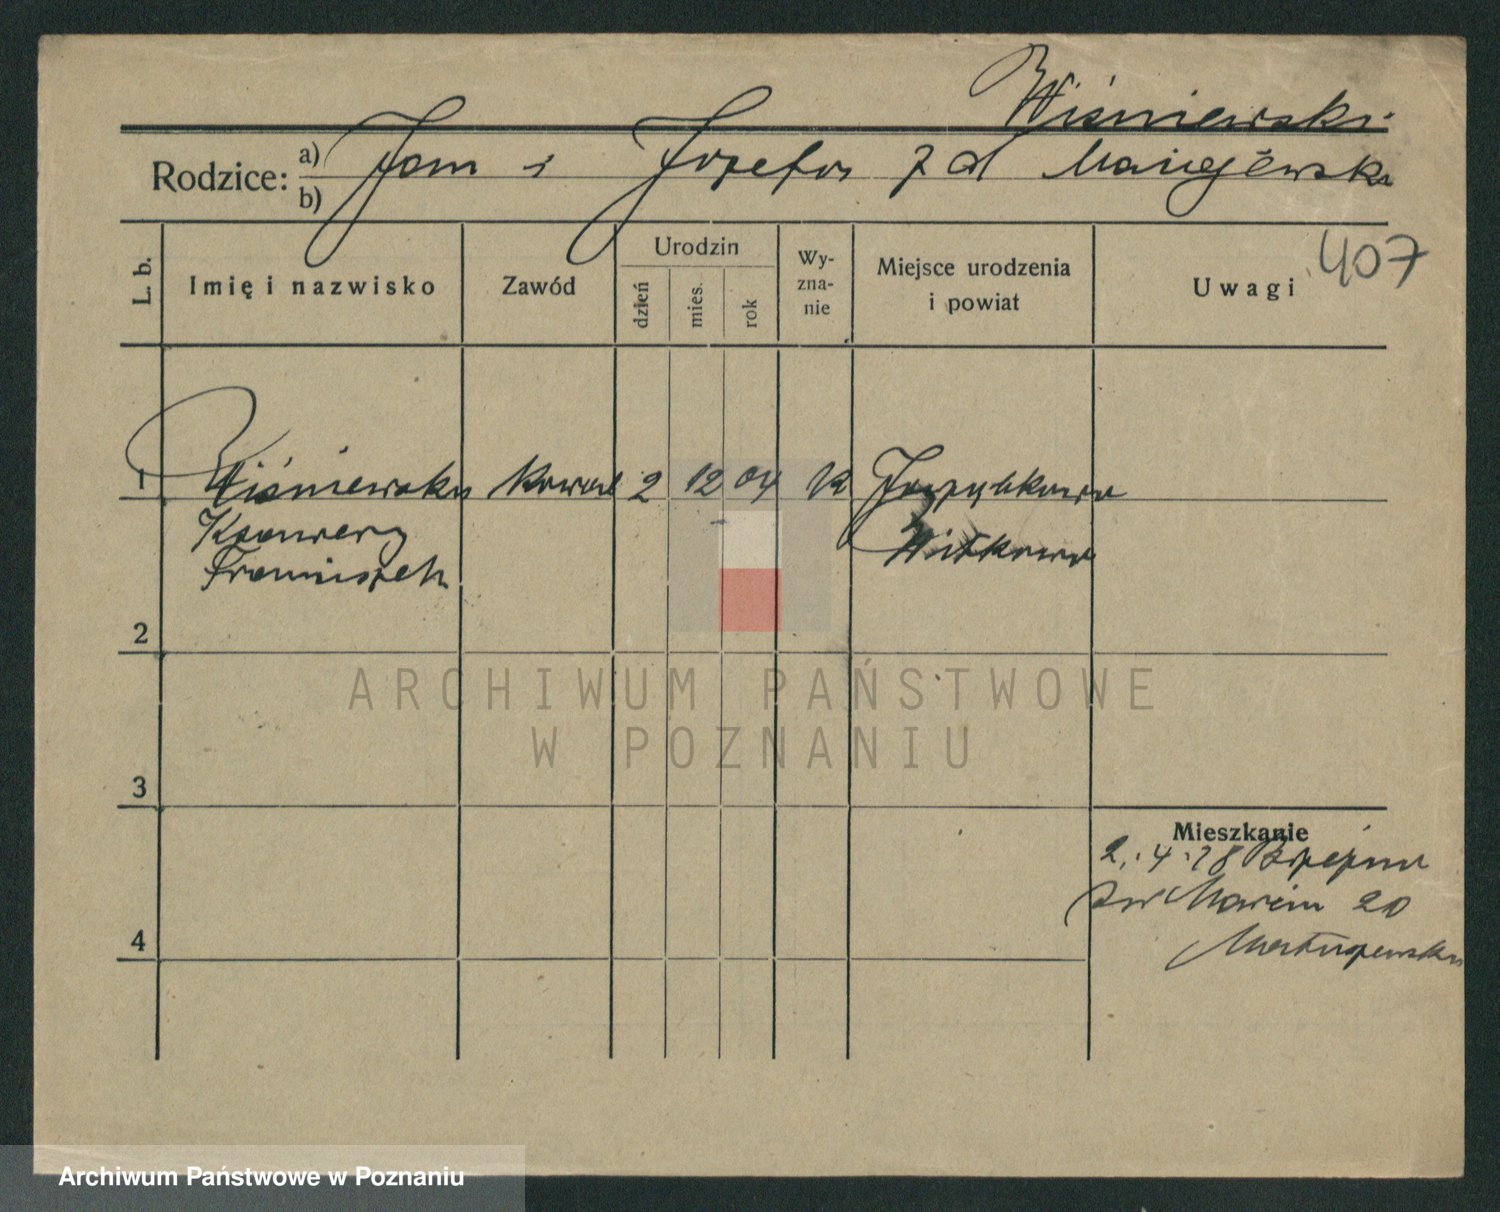 Wiśniewski
Rodzice: a) Jan i Józefa z d Maciejewska
b)
407
L. b.
Imię i nazwisko
Zawód
Urodzin
dzień
mies.
rok
Wy-
zna-
nie
Miejsce urodzenia
i powiat
Uwagi
1 Wiśniewski kowal 2 12 04 rk
Ksawery
Franciszek
Witkowo
2
3
4
Mieszkanie
2.4.28
Św Marcin 20
ARCHIWUM PAŃSTWOWE
W POZNANIU
Archiwum Państwowe w Poznaniu